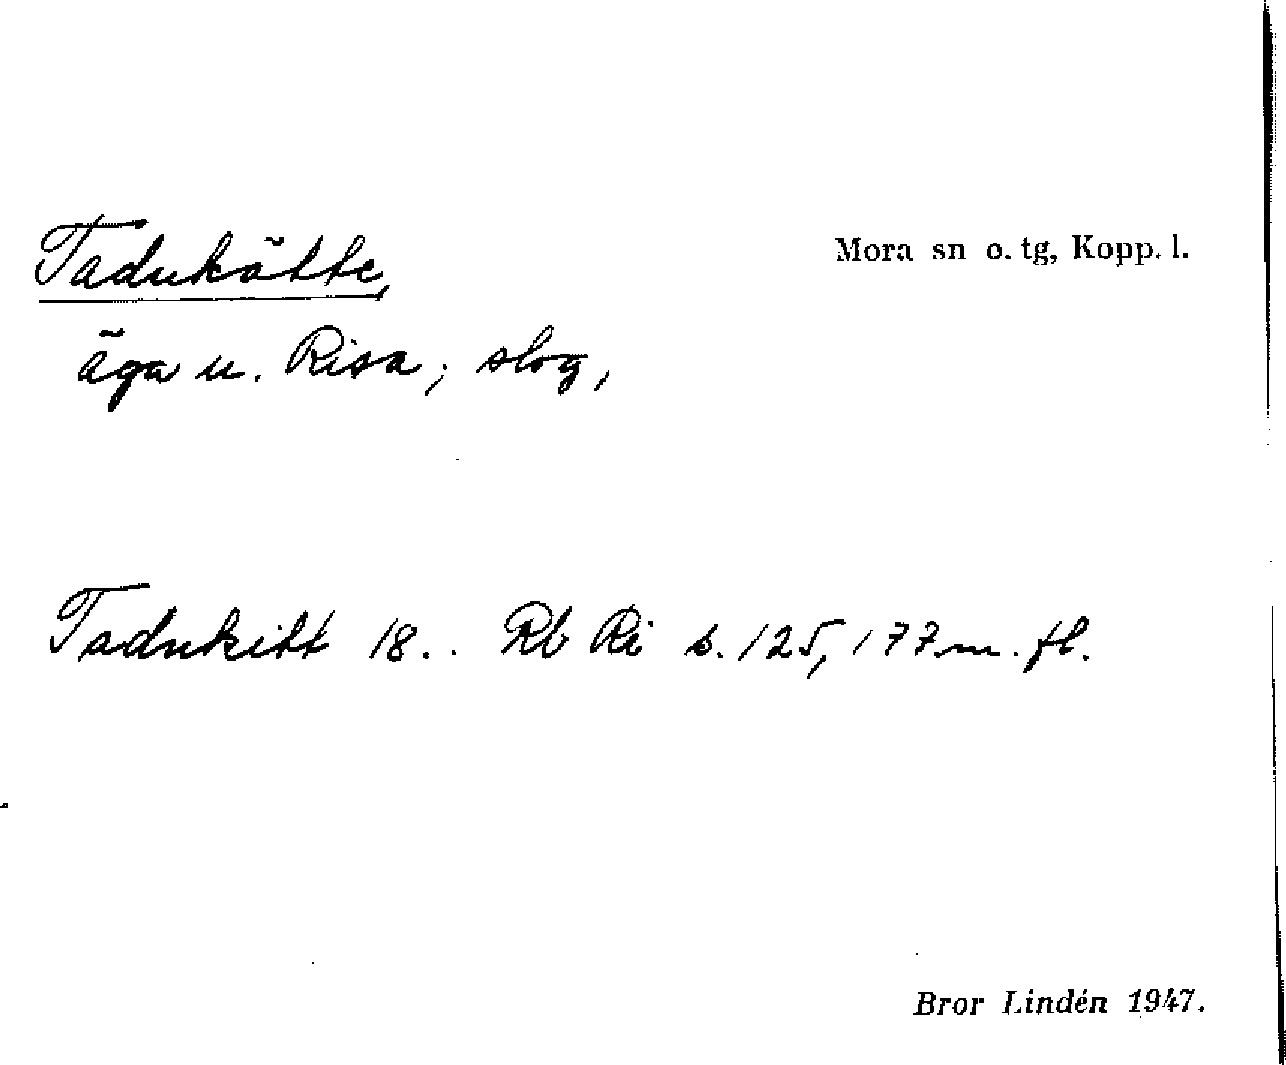 Tadukätte,
Mora sn o. tg, Kopp. l.
äga u. Risa; slog,
Tadukitt 18.. Rb Ri s. 125, 177 m. fl.
Bror Lindén 1947.